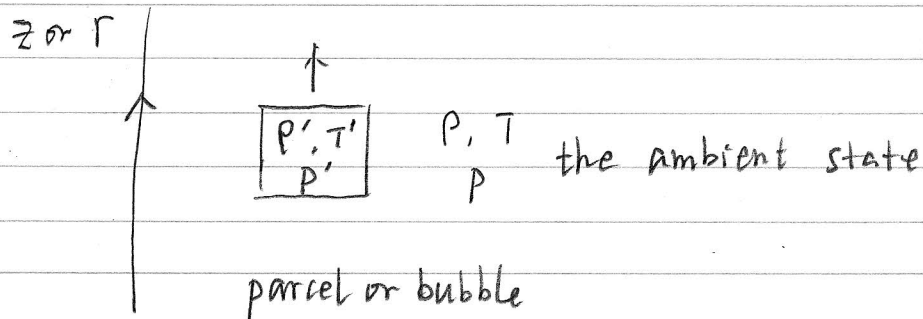 z or r
ρ', T' ρ, T
p' p the ambient state
parcel or bubble